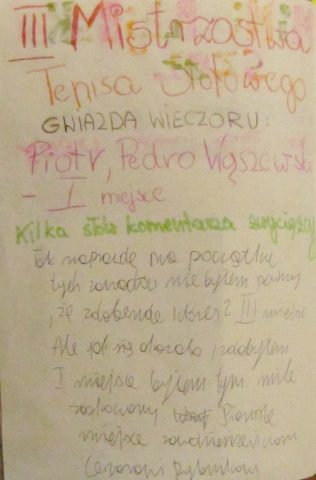 III Mistrzostwa
Tenisa Stołowego
GWIAZDA WIECZORU:
Piotr, Pedro Wąszewski
- I miejsce
Kilka słów komentarza zwycięzcy
Tak naprawdę na początku
tych zawodów nie byłem pewny
, że zdobende III miejsce
Ale jak się okazało zdobyłem
I miejsce byłem tym mile
zaskoczony. Pierwsze
miejsce zawdzienczam